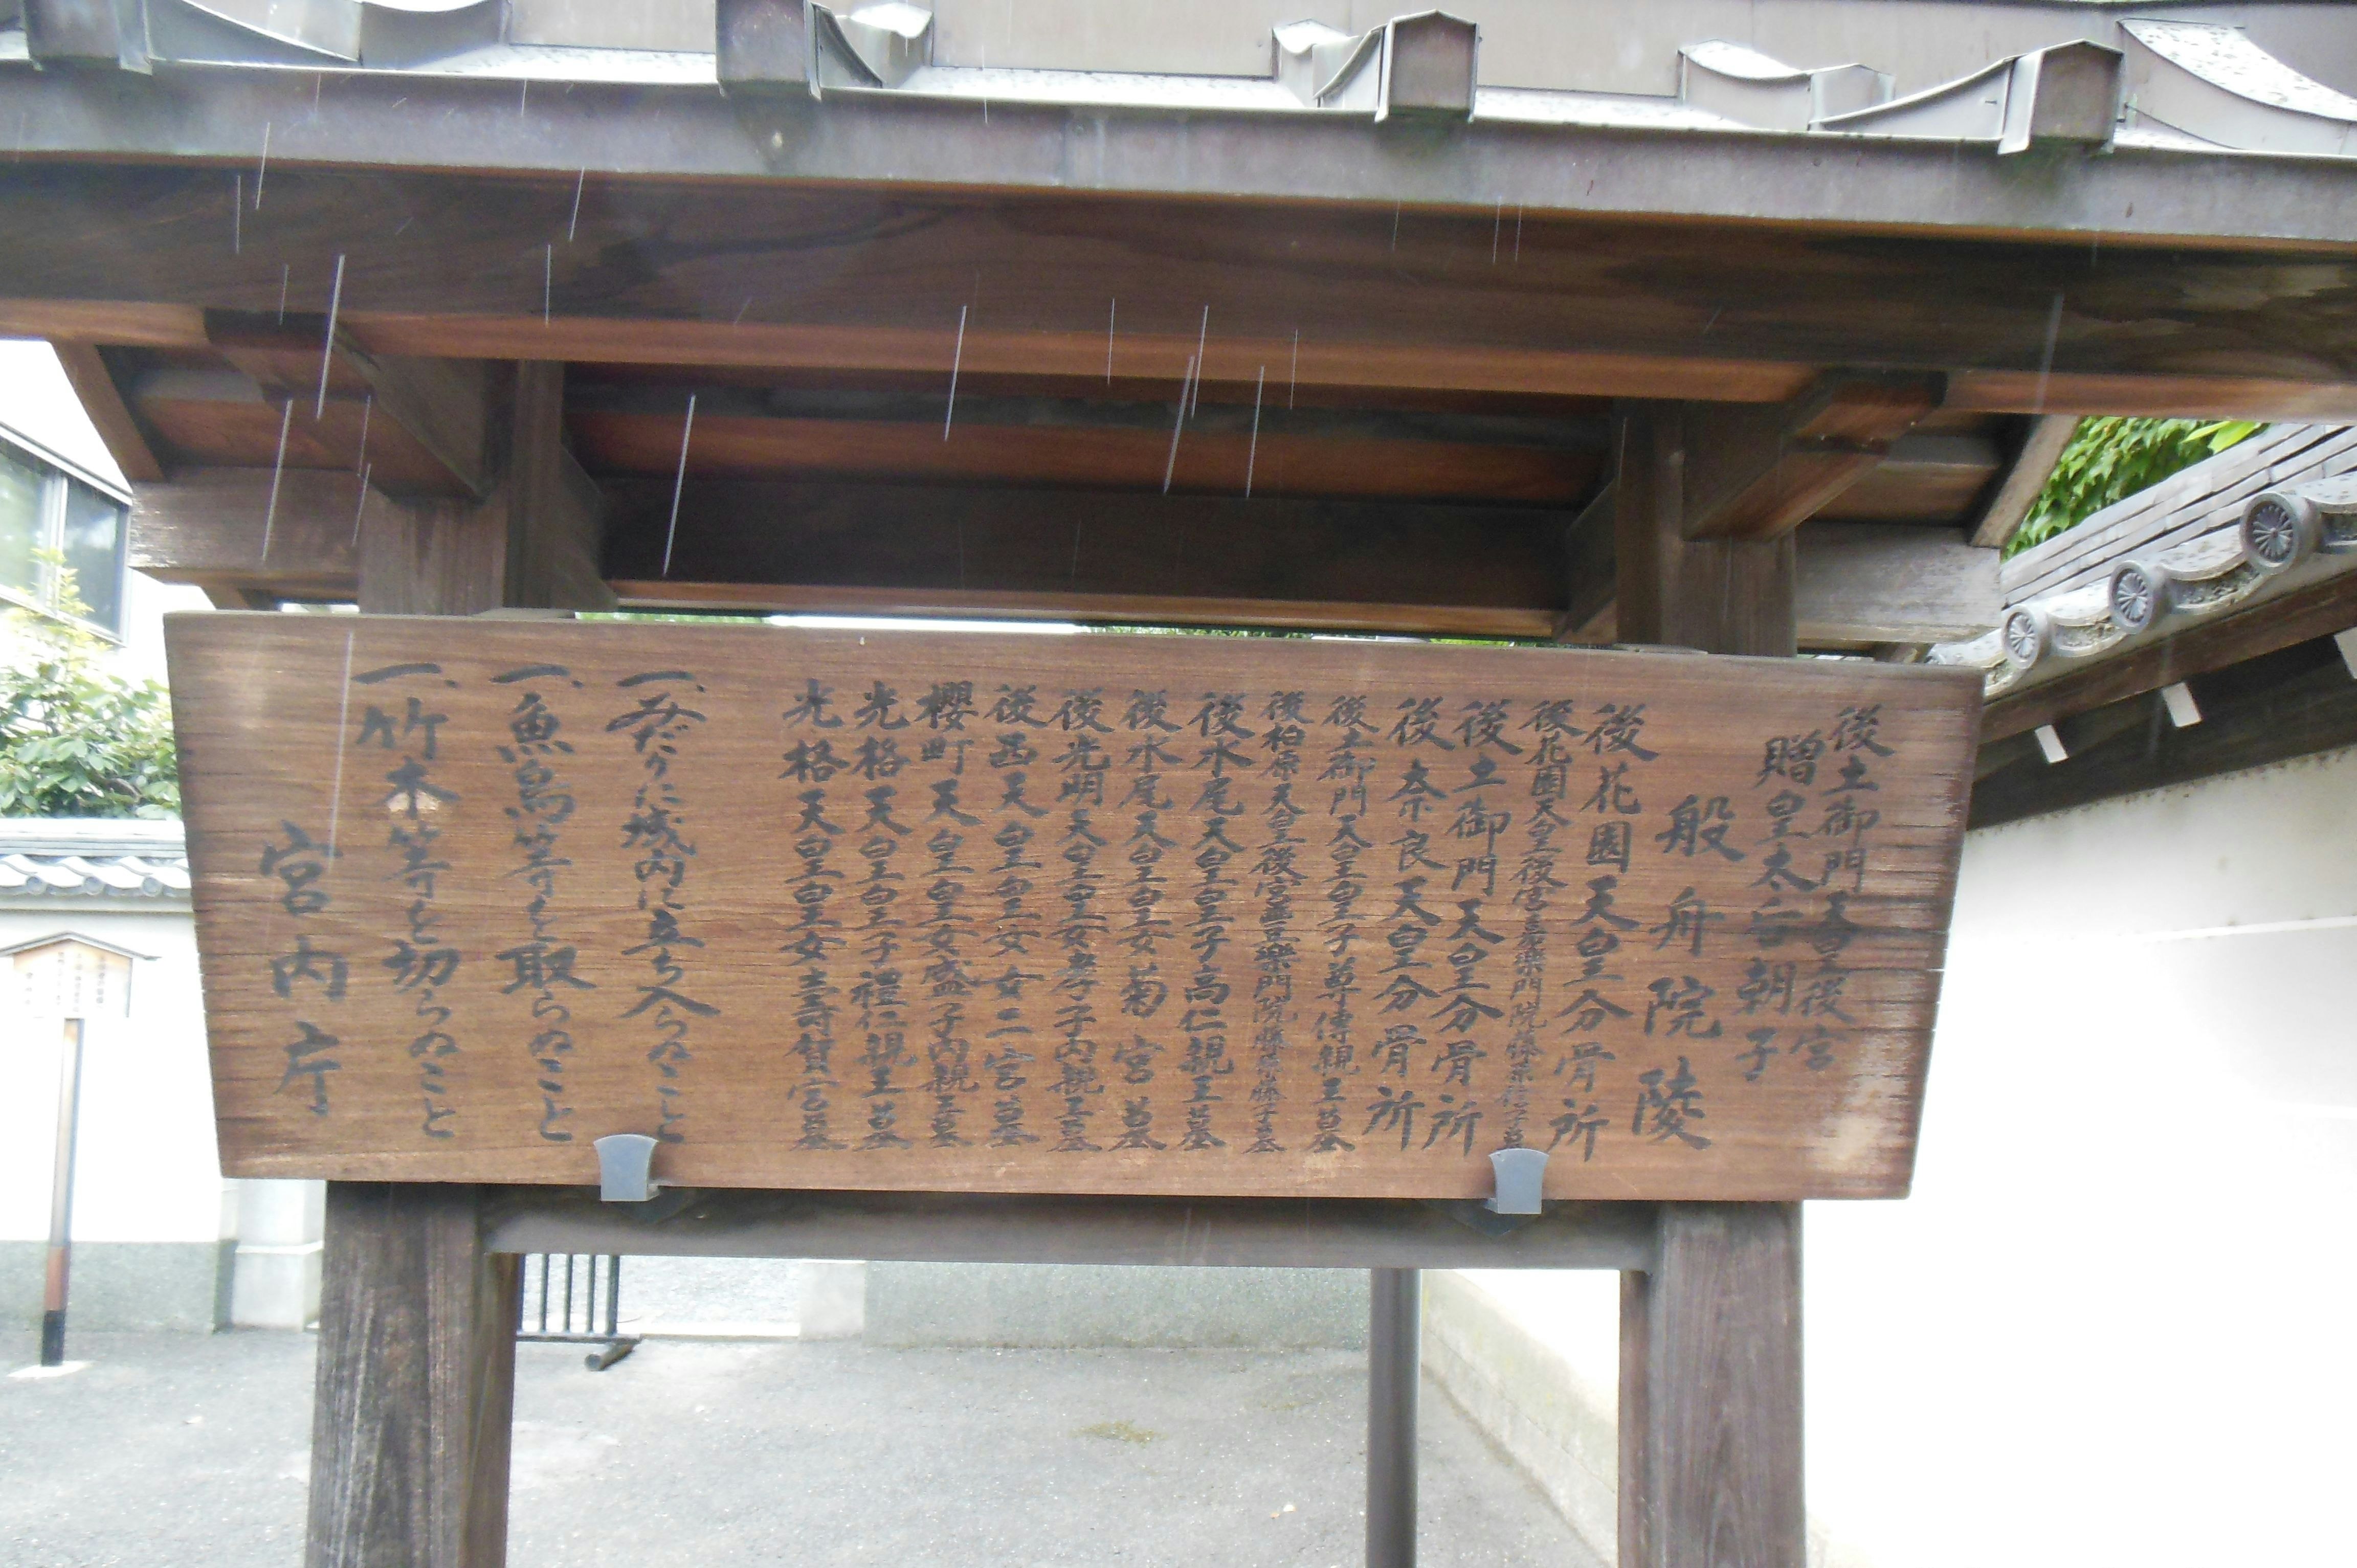 後土御門天皇後宮
贈皇太后朝子
般舟院陵
後花園天皇分骨所
後花園天皇後宮嘉樂門院藤原信子墓
後土御門天皇分骨所
後奈良天皇分骨所
後土御門天皇皇子尊傳親王墓
後柏原天皇後宮豊樂門院藤原藤子墓
後水尾天皇皇子高仁親王墓
後水尾天皇皇女菊宮墓
後光明天皇皇女孝子内親王墓
後西天皇皇女女二宮墓
櫻町天皇皇女盛子内親王墓
光格天皇皇子禮仁親王墓
光格天皇皇女壽賀宮墓
一、みだりに域内に立ち入らぬこと
一、魚鳥等を取らぬこと
一、竹木等を切らぬこと
宮内庁